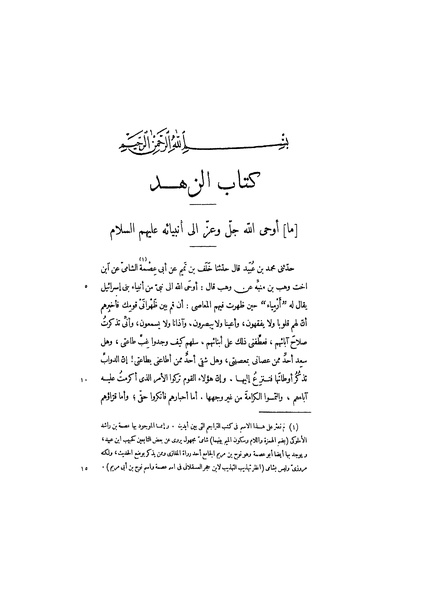 بسم الله الرحمن الرحيم
كتاب الزهد
[ما] أوحى الله جلّ وعزّ الى أنبيائه عليهم السلام
حدّثنى محمد بن عُبَيد، قال حدّثنا خَلَف بن تَمِيم عن أبى عِصْمة (١) الشامىّ عن ابن
اخت وهب بن منبِّه عن وهب قال : أوحَى الله الى نبىّ من أنبياء بنى إسرائيل ٥
يقال له "أَرْمِياء" حين ظهرت فيهم المعاصى : أن قم بين ظَهْرَانَىْ قومِك فأخبِرْهم
أنّ لهم قلوبا ولا يفقهون، وأعينا ولا يبصرون، وآذانا ولا يسمعون، وأنّى تذكّرتُ
صلاحَ آبائهم ، فعطَّفنى ذلك على أبنائهم . سلهم كيف وجدوا غِبَّ طاعتى، وهل
سعِد أحدٌ ممن عصانى بمعصيتى، وهل شقِىَ أحدٌ ممن أطاعنى بطاعتى! إن الدوابَّ
تذكُر أوطانَها فتنزِعُ إليها . وإن هؤلاء القوم تركوا الأمر الذى أكرمتُ عليه ١٠
آباءهم ، والتمسوا الكرامةَ من غير وجهها . أما أحبارُهم فأنكروا حقّى؛ وأما قرّاؤهم
(١) لم نعثر على هذا الاسم فى كتب التراجم التى بين أيدينا . وإنما الموجود بها عصمة بن راشد
الأملوكى (بضم الهمزة واللام وسكون الميم بينهما) شامىّ مجهول يروى عن بعض التابعين كحبيب ابن عبيد،
ويوجد بها أيضا أبو عصمة وهو نوح بن مريم الجامع أحد رواة المغازى وممن يذكر بوضع الحديث، ولكنه
مروزىّ وليس بشامىّ (انظر تهذيب التهذيب لابن حجر العسقلانى فى اسم عصمة واسم نوح بن أبى مريم) . ١٥